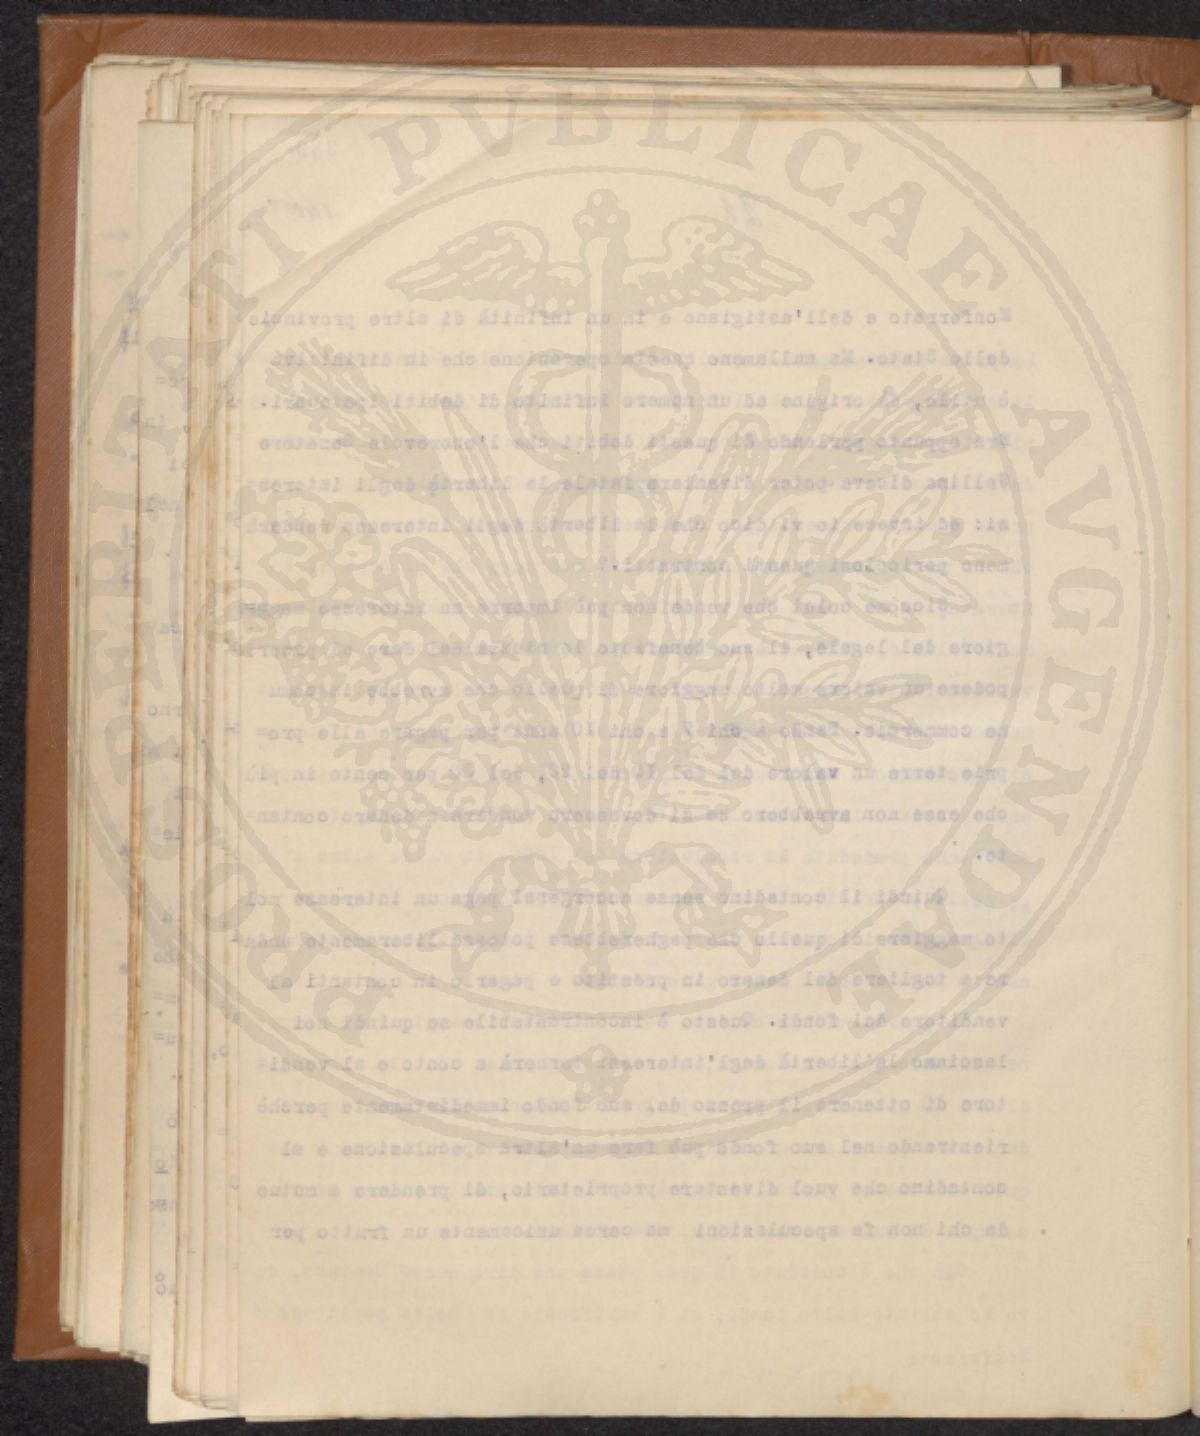 PROSPERITATI PUBLICAE AVGENDAE
Monferrato e dell'astigiano e in un infinità di altre provincie
dello Stato. Ma nullameno questa operazione che in difinitiva
è utile, dà origine ad un numero infinito di debiti ipotecari.
Era appunto parlando di questi debiti che l'onorevole Senatore
Gallina diceva poter diventare fatale la libertà degli interes=
si: ed invece io vi dico che la libertà degli interessi renderà
meno pericolosi questi contratti.
Siccome colui che vende non può imporre un interesse mag=
giore del legale, il suo beneficio lo ricava dal dare al proprio
podere un valore molto maggiore di quello che avrebbe in comu
ne commercio. Dando a chi 7 a chi 10 anni per pagare alle pro=
prie terre un valore del del 10 del 20, del 30 per cento in più
che esse non avrebbero se si dovessero vendere a denaro contan=
te.
Quindi il contadino senza accorgersi paga un interesse mol
to maggiore di quello che pagherebbese potesse liberamente anda=
re a togliere del denaro in prestito e pagarlo in contanti al
venditore dei fondi. Questo è incontrastabile se quindi noi
lasciamo la libertà degl'interessi tornerà a conto e al vendi=
tore di ottenere il prezzo del suo fondo immediatamente perchè
rientrando nel suo fondo può fare un'altra speculazione e al
contadino che vuol diventare proprietario, di prendere a mutuo
da chi non fa speculazioni ma cerca unicamente un frutto per